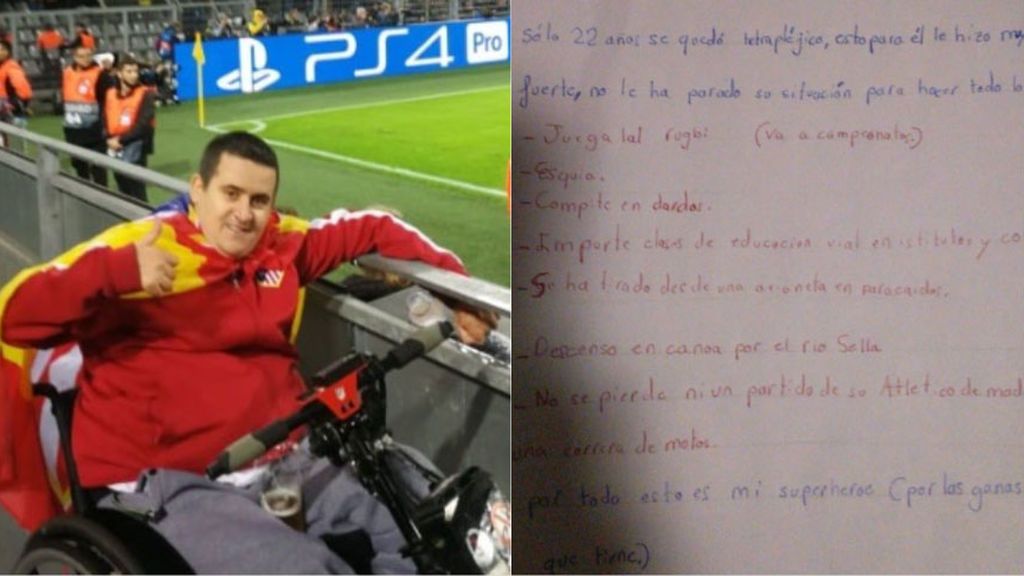 PS4 Pro
Sólo 22 años se quedó tetrapléjico, esto para él le hizo
fuerte, no le ha parado su situación para hacer todo lo
- Juega lal rugbi (va a campronatos.)
- Esquia.
- Compite en dardos.
- Imparte clases de educacion vial en istitutos y co
- Se ha tirado desde una avioneta en paracaidas.
- Descenso en canoa por el rio Sella
- No se pierde ni un partido de su Atletico de mad
una carrera de motos.
por todo esto es mi superheroe (por las ganas
que tiene.)